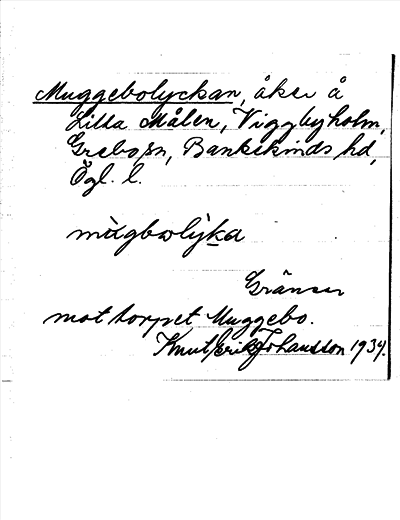 Muggebolyckan, åker å
Lilla Målen, Viggbyholm,
Grebo sn, Bankekinds hd,
Ögl. l.
mùgbωlỳka
Gränser
mot torpet Muggebo.
Knut Erik Johansson 1934.